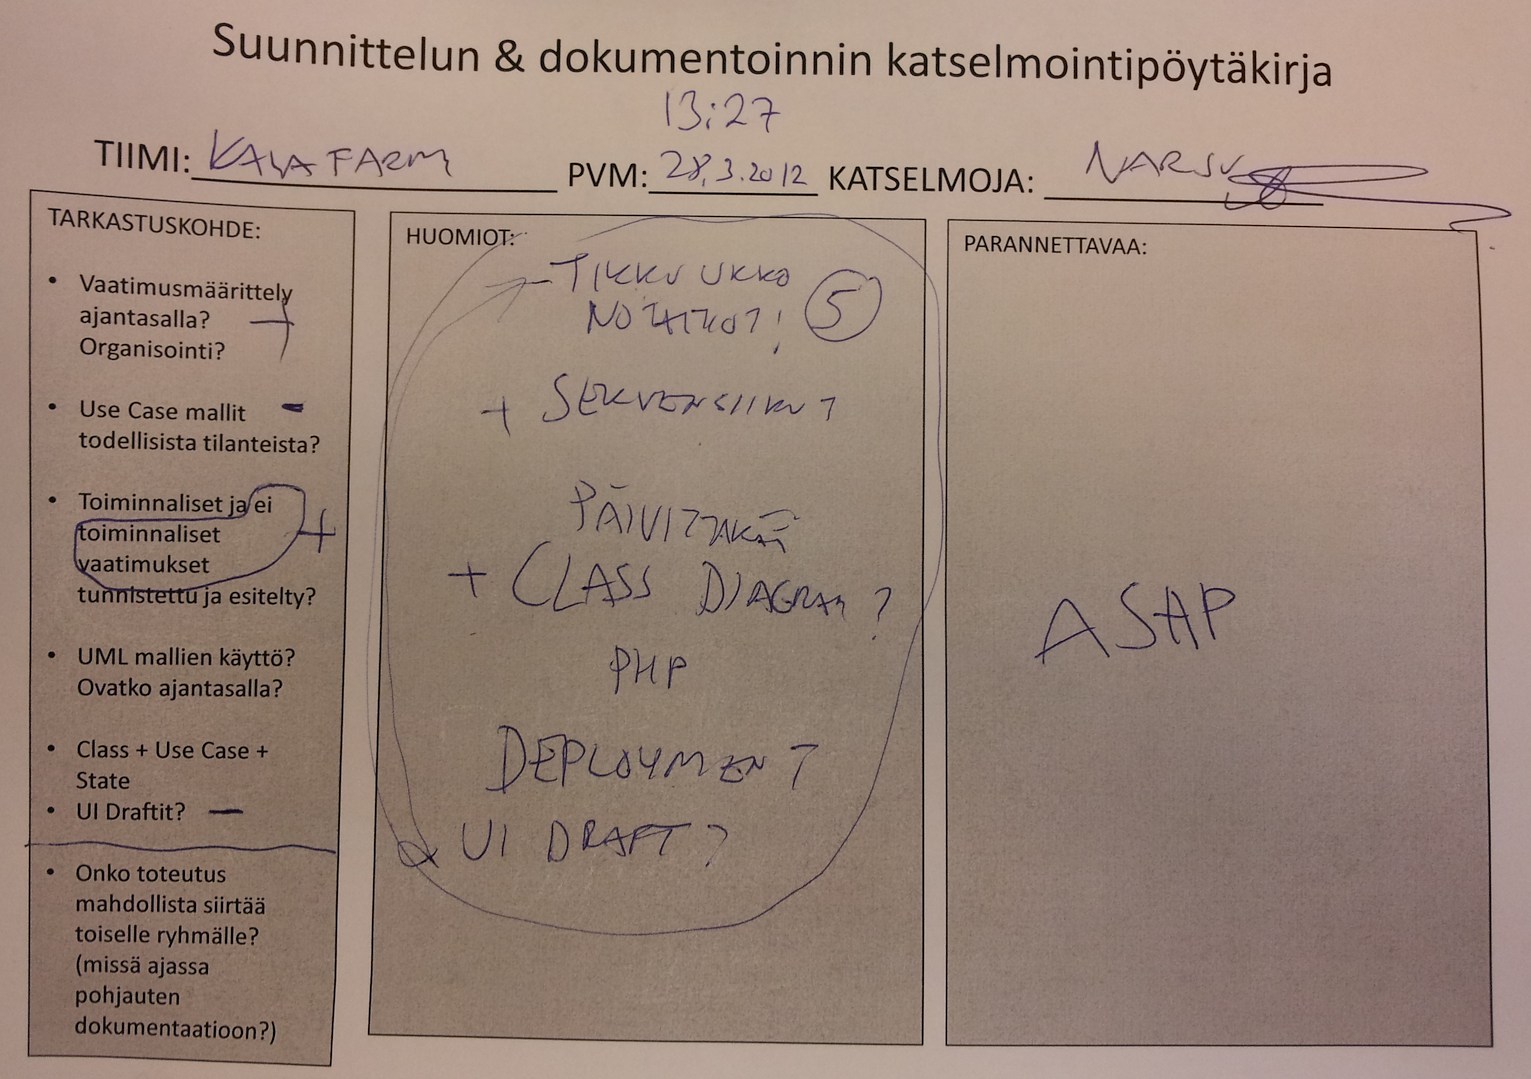 Suunnittelun & dokumentoinnin katselmointipöytäkirja
13:27
TIIMI: KALAFARM PVM: 28.3.2012 KATSELMOJA: NARSU
TARKASTUSKOHDE:
• Vaatimusmäärittely
ajantasalla? +
Organisointi?
• Use Case mallit -
todellisista tilanteista?
• Toiminnaliset ja ei
toiminnaliset +
vaatimukset
tunnistettu ja esitelty?
• UML mallien käyttö?
Ovatko ajantasalla?
• Class + Use Case +
State
• UI Draftit? -
• Onko toteutus
mahdollista siirtää
toiselle ryhmälle?
(missä ajassa
pohjauten
dokumentaatioon?)
HUOMIOT:
- TIKKU UKKO
5
+ SEKVENSSIKUT
+ CLASS DIAGRAM?
PHP
DEPLOYMENT
UI DRAFT?
PARANNETTAVAA:
ASAP